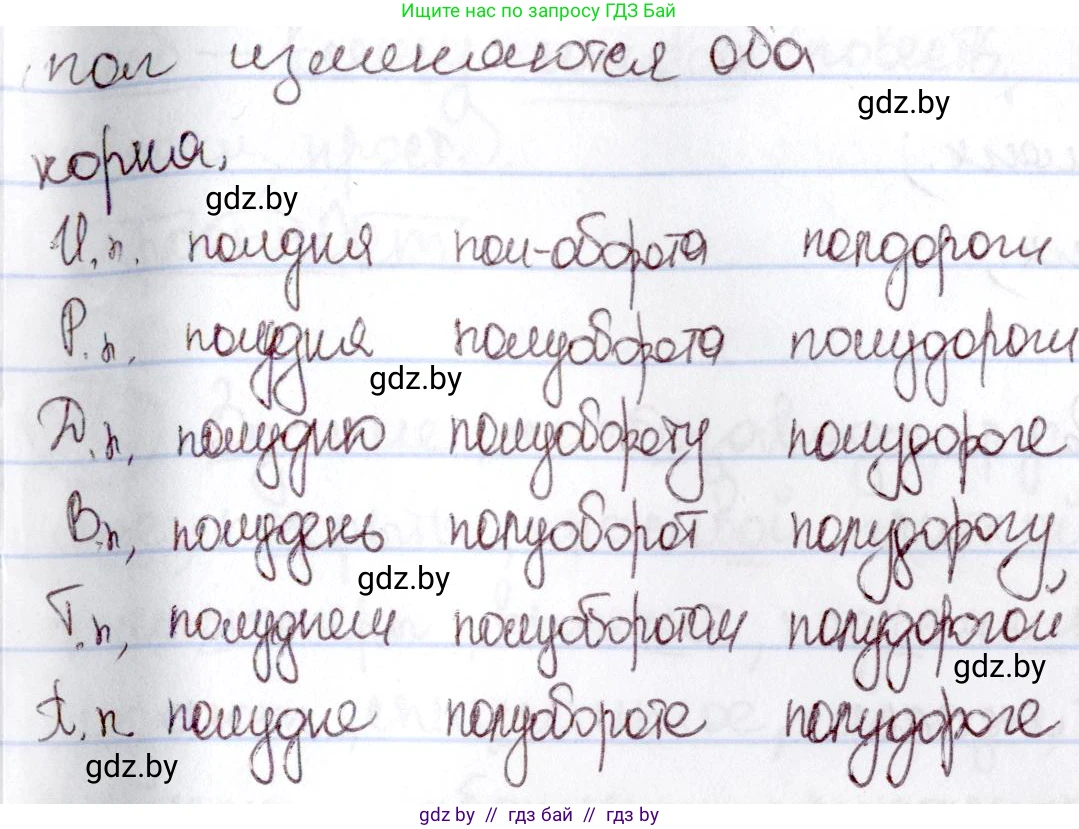 Ищите нас по запросу ГДЗ Бай
пол изменяются оба
gdz.by
корня.
gdz.by
И.п. полдня пол-оборота полдороги
Р.п. полудня полуоборота полудороги
gdz.by
Д.п. полудню полуобороту полудороге
В.п. полудень полуоборот полудорогу
gdz.by
Т.п. полуднем полуоборотом полудорогой
gdz.by
П.п полудне полуобороте полудороге
gdz.by
gdz by // гдз бай // гдз by